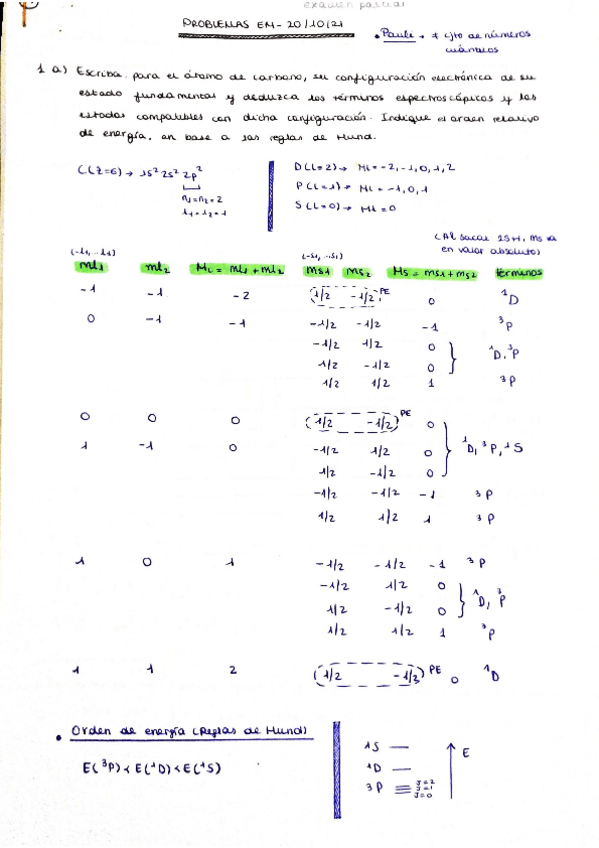 examen parcial
PROBLEMAS EM - 20/10/21
• Pauli → ≠ cjto de números
cuánticos
1 a) Escriba para el átomo de carbono, su configuración electrónica de su
estado fundamental y deduzca los términos espectroscópicos y los
estados compatibles con dicha configuración. Indique el orden relativo
de energía, en base a las reglas de Hund.
C(Z=6) → 1s² 2s² 2p²
n1=n2=2
l1=l2=1
D(L=2) → ML = -2, -1, 0, 1, 2
P(L=1) → ML = -1, 0, 1
S(L=0) → ML = 0
(Al sacar 2S+1, Ms va
en valor absoluto)
(-l1, ..l1) (-s1, ..s1)
ml1 ml2 ML = ml1 + ml2 ms1 ms2 Ms = ms1 + ms2 términos
-1 -1 -2 (1/2 -1/2) PE 0 ¹D
0 -1 -1 -1/2 -1/2 -1 ³P
-1/2 1/2 0
1/2 -1/2 0 } ¹D, ³P
1/2 1/2 1 ³P
0 0 0 (1/2 -1/2) PE 0
1 -1 0 -1/2 1/2 0 } ¹D, ³P, ¹S
1/2 -1/2 0
-1/2 -1/2 -1 ³P
1/2 1/2 1 ³P
1 0 1 -1/2 -1/2 -1 ³P
-1/2 1/2 0
1/2 -1/2 0 } ¹D, ³P
1/2 1/2 1 ³P
1 1 2 (1/2 -1/2) PE 0 ¹D
• Orden de energía (Reglas de Hund)
E(³P) < E(¹D) < E(¹S)
1S — E
1D —
3P ≡ J=2
J=1
J=0